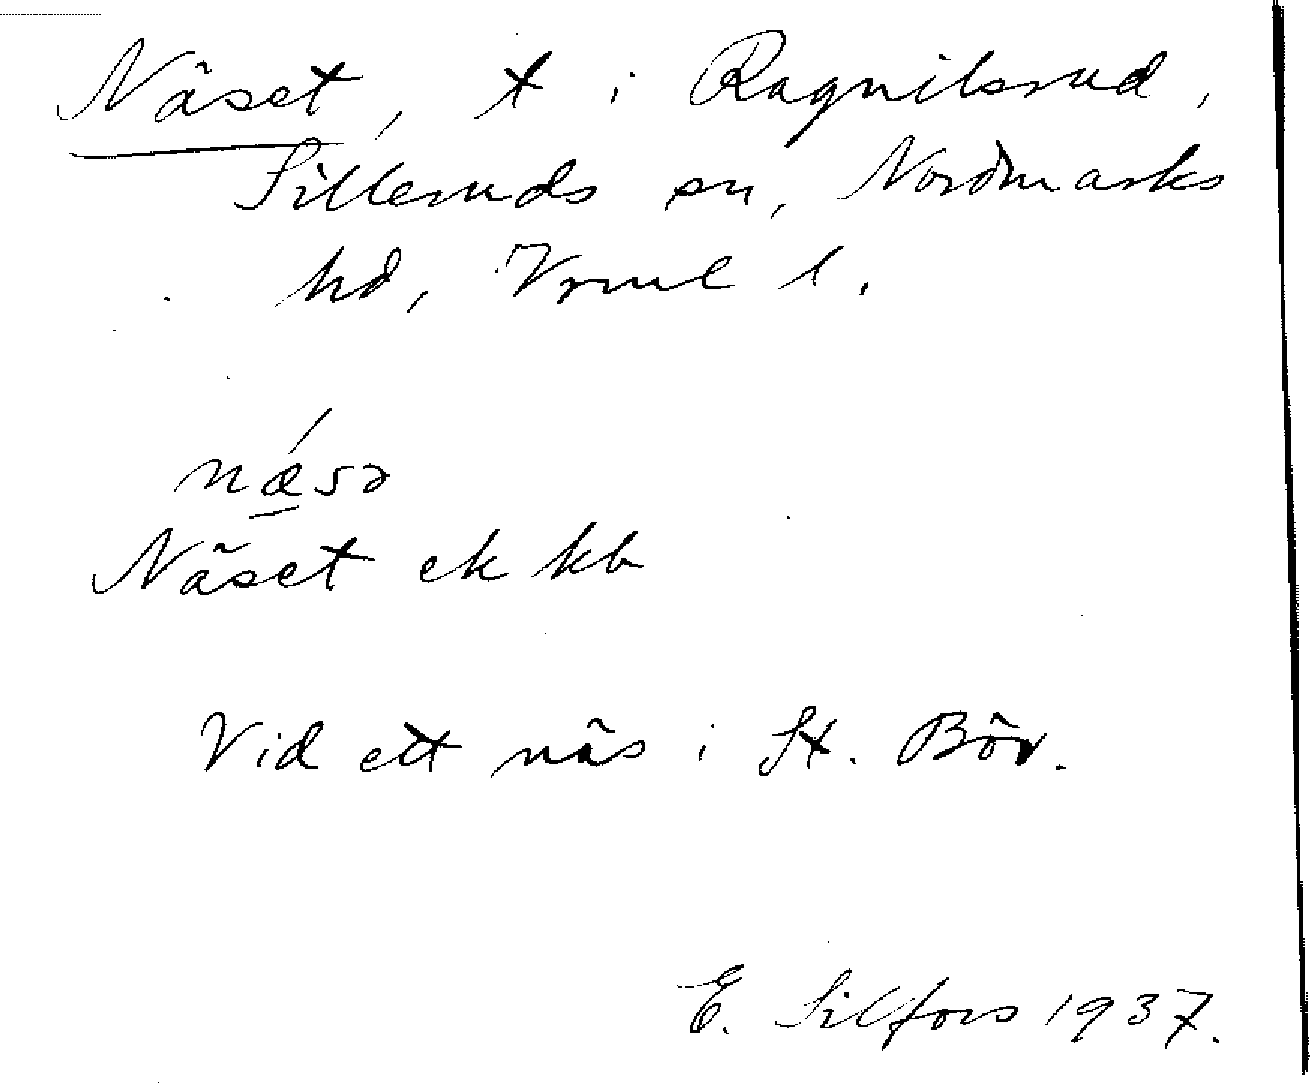 Näset, t i Ragnilsrud,
Silleruds sn, Nordmarks
hd, Vrml l.
nǽ̲sə
Näset ek kb
Vid ett näs i St. Bör.
E. Silfors 1937.